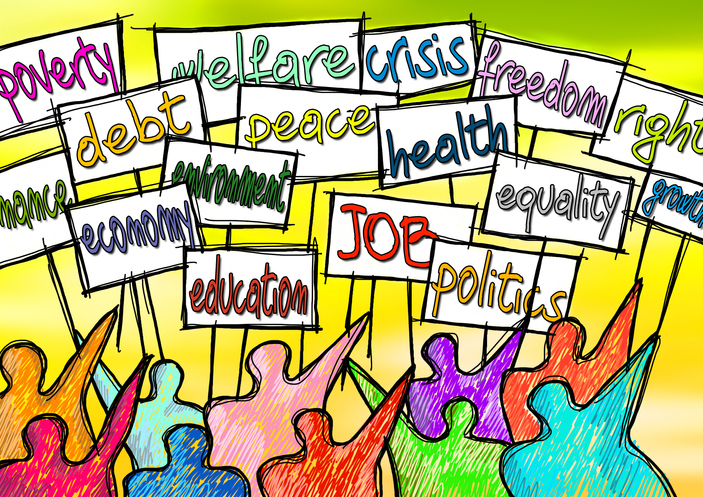 poverty
welfare
crisis
freedom
right
debt
peace
health
environment
equality
growth
mance
economy
JOB
education
politics